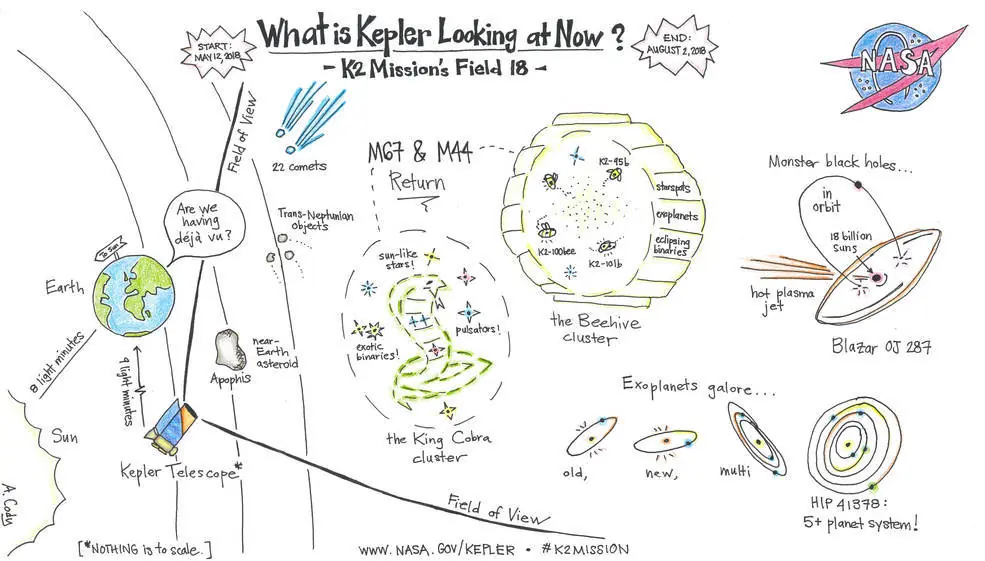 What is Kepler Looking at Now?
- K2 Mission's Field 18 -
START:
MAY 12, 2018
END:
AUGUST 2, 2018
NASA
Field of View
22 comets
Are we
having
déjà vu?
Trans-Neptunian
objects
To Sun
Earth
8 light minutes
9 light minutes
near-
Earth
asteroid
Apophis
Sun
Kepler Telescope*
A. Cody
[*NOTHING is to scale.]
Field of View
M67 & M44
Return
sun-like
stars!
exotic
binaries!
pulsators!
the King Cobra
cluster
K2-95b
K2-100bee
K2-101b
starspots
exoplanets
eclipsing
binaries
the Beehive
cluster
Monster black holes...
in
orbit
18 billion
suns
hot plasma
jet
Blazar OJ 287
Exoplanets galore...
old,
new,
multi
HIP 41378:
5+ planet system!
WWW.NASA.GOV/KEPLER • #K2MISSION